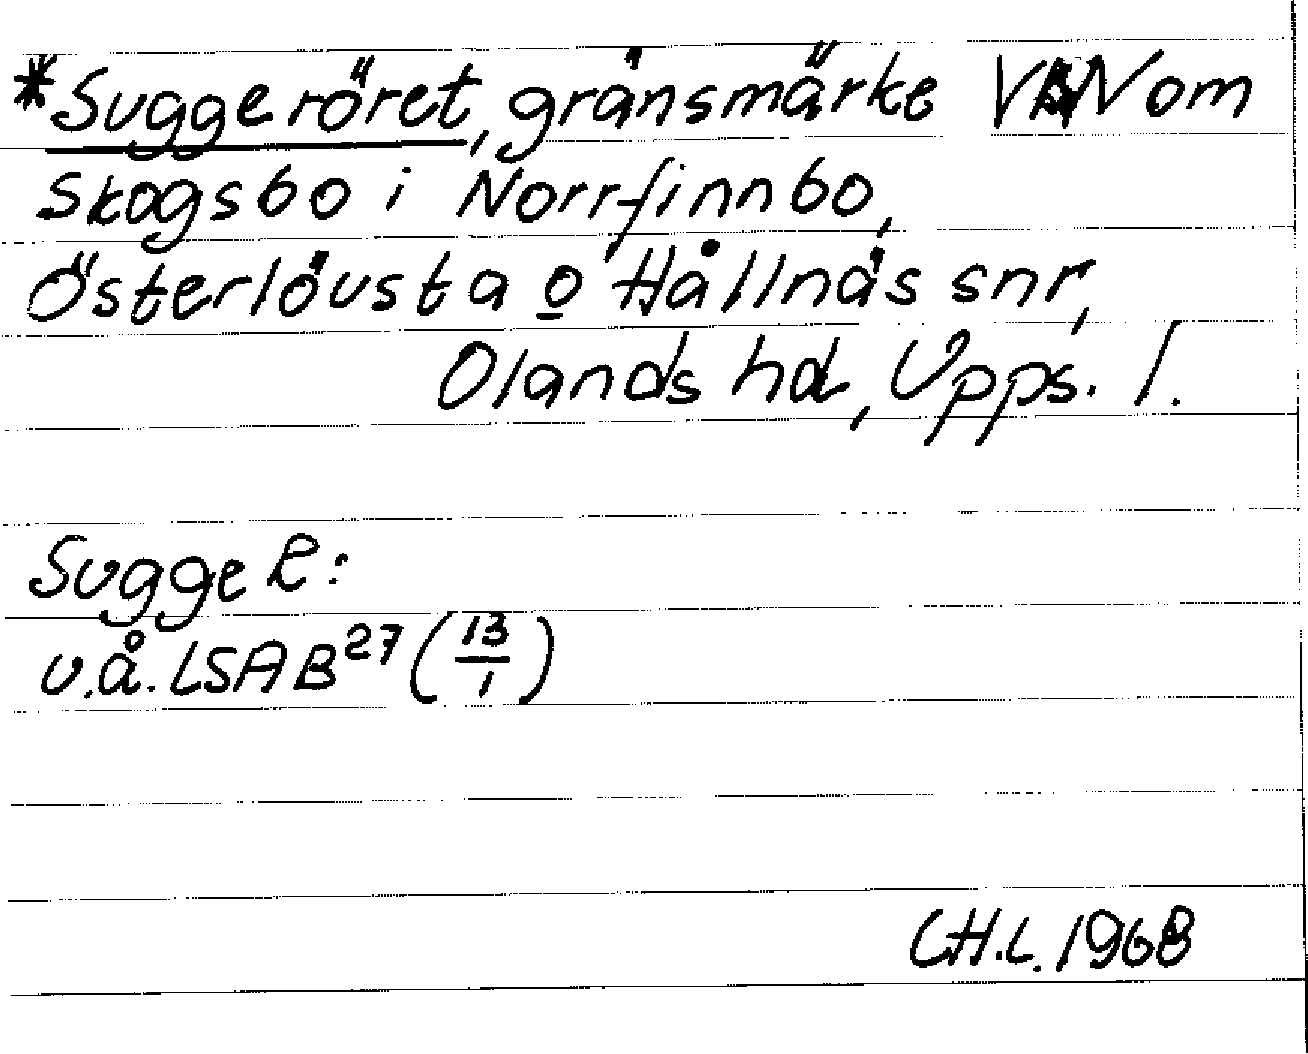 *Suggeröret, gränsmärke VNV om
Skogsbo i Norrfinnbo,
Österlövsta o Hållnäs snr,
Olands hd, Upps. l.
Sugge R:
v.å. LSA B²⁷ (13/1)
CH.L. 1968